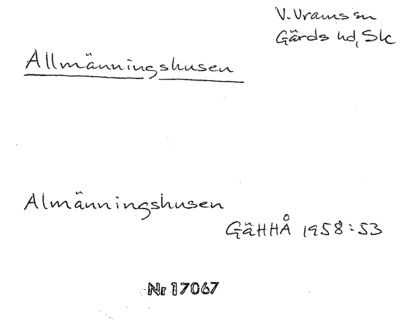 V. Vrams sn
Gärds hd, Sk
Allmänningshusen
Almänningshusen
GäHHÅ 1958:53
Nr 17067